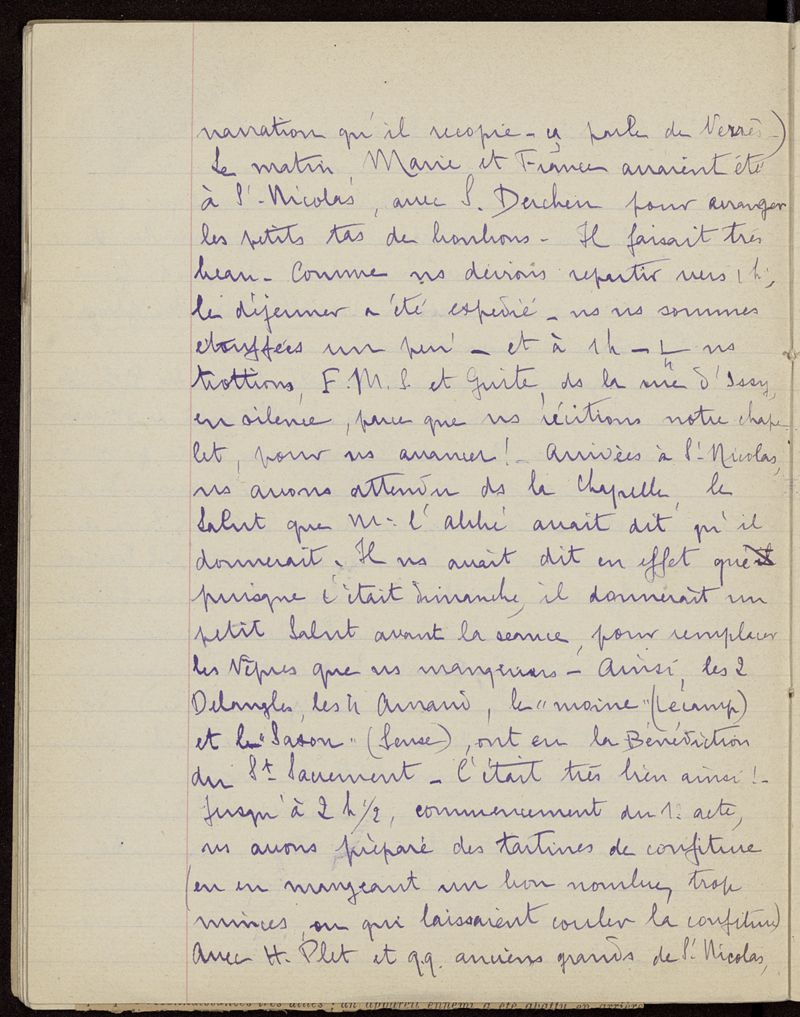 narration qu'il recopie - ça parle de Verrès -)
Le matin, Marie et France avaient été
à St-Nicolas, avec S. Derchen pour arranger
les petits tas de bonbons - Il faisait très
beau - Comme ns devions repartir vers 1 h,
le déjeuner a été expédié - ns ns sommes
etouffées un peu - et à 1h - ns
trottions, F. M. S. et Guite, ds la rue d'Issy,
en silence, parce que ns récitions notre chape-
let, pour ns avancer! - Arrivées à St-Nicolas,
ns avons attendu ds la chapelle, le
Salut que Mr l'abbé avait dit qu'il
donnerait. Il ns avait dit en effet que
puisque c'était dimanche, il donnerait un
petit Salut avant la séance, pour remplacer
les Vêpres que ns manquions - Ainsi, les 2
Delangles, les 4 Amand, le "moine" (Lécamp)
et le "Saxon" (Sense), ont eu la Bénédiction
du St Sacrement - C'était très bien ainsi! -
Jusqu'à 2 h 1/2, commencement du 1r acte,
ns avons préparé des tartines de confiture
(en en mangeant un bon nombre, trop
minces, ou qui laissaient couler la confiture)
Avec H. Plet et qq. anciens grands de St-Nicolas,
un appareil ennemi a été abattu en arrière